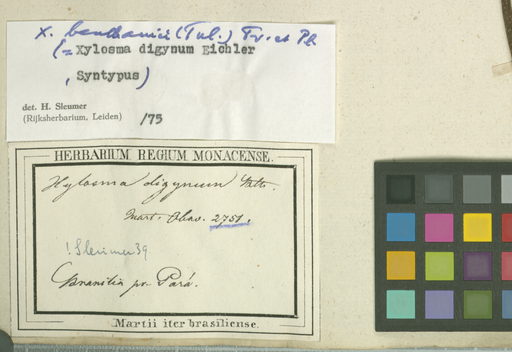 X. benthamii (Tul.) Tr. et Pl.
(= Xylosma digynum Eichler
, Syntypus)
det. H. Sleumer
(Rijksherbarium, Leiden) /75
HERBARIUM REGIUM MONACENSE.
Xylosma digynum
Mart. Obs. 2751.
! Sleumer 39
Brasilia pr. Pará.
Martii iter brasiliense.